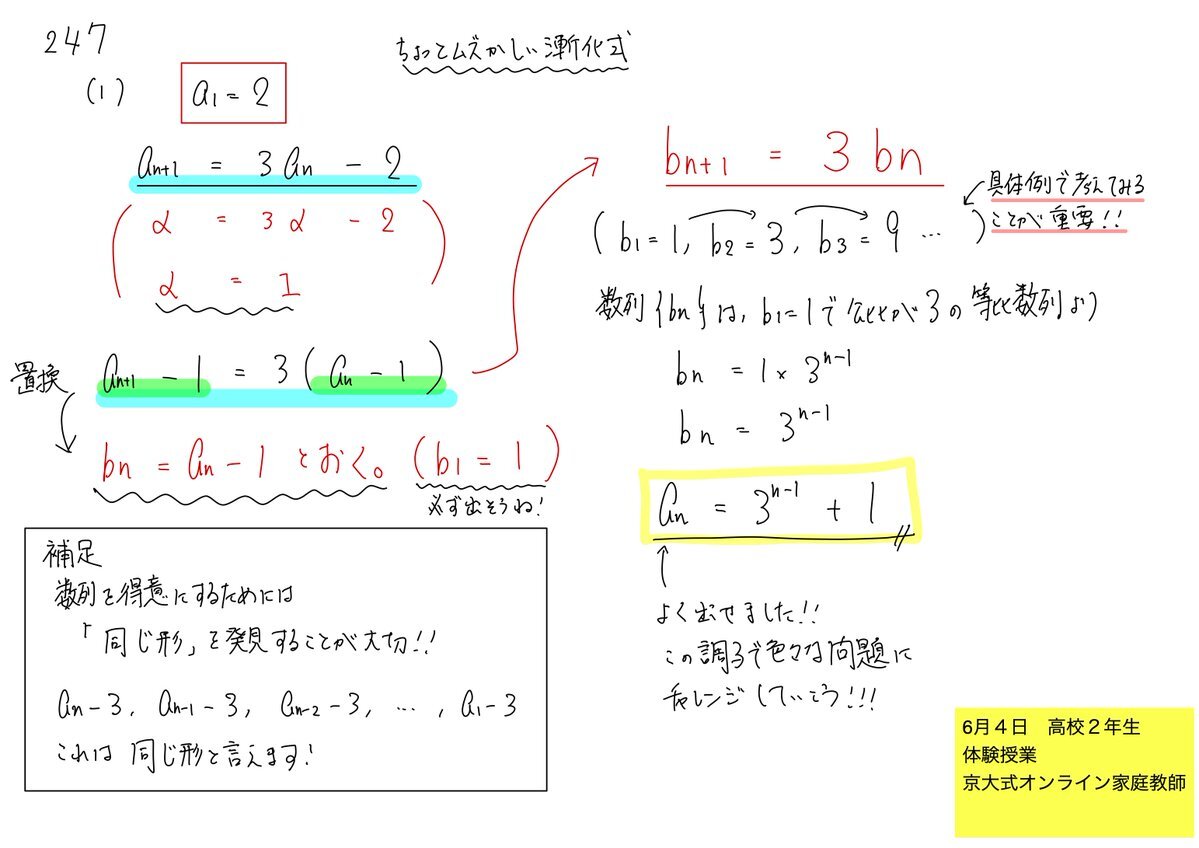 247
ちょっとムズかしい漸化式
(1) a1 = 2
an+1 = 3an - 2
( α = 3α - 2
α = 1 )
置換
an+1 - 1 = 3(an - 1)
bn = an - 1 とおく。 (b1 = 1)
必ず出そうね!
補足
数列を得意にするためには
「同じ形」を発見することが大切!!
an-3, an-1-3, an-2-3, …, a1-3
これは同じ形と言えます!
bn+1 = 3bn
具体例で考えてみる
ことが重要!!
(b1=1, b2=3, b3=9 … )
数列{bn}は, b1=1で公比が3の等比数列より
bn = 1×3^n-1
bn = 3^n-1
an = 3^n-1 + 1
よく出せました!!
この調子で色々な問題に
チャレンジしていこう!!!
6月4日 高校2年生
体験授業
京大式オンライン家庭教師